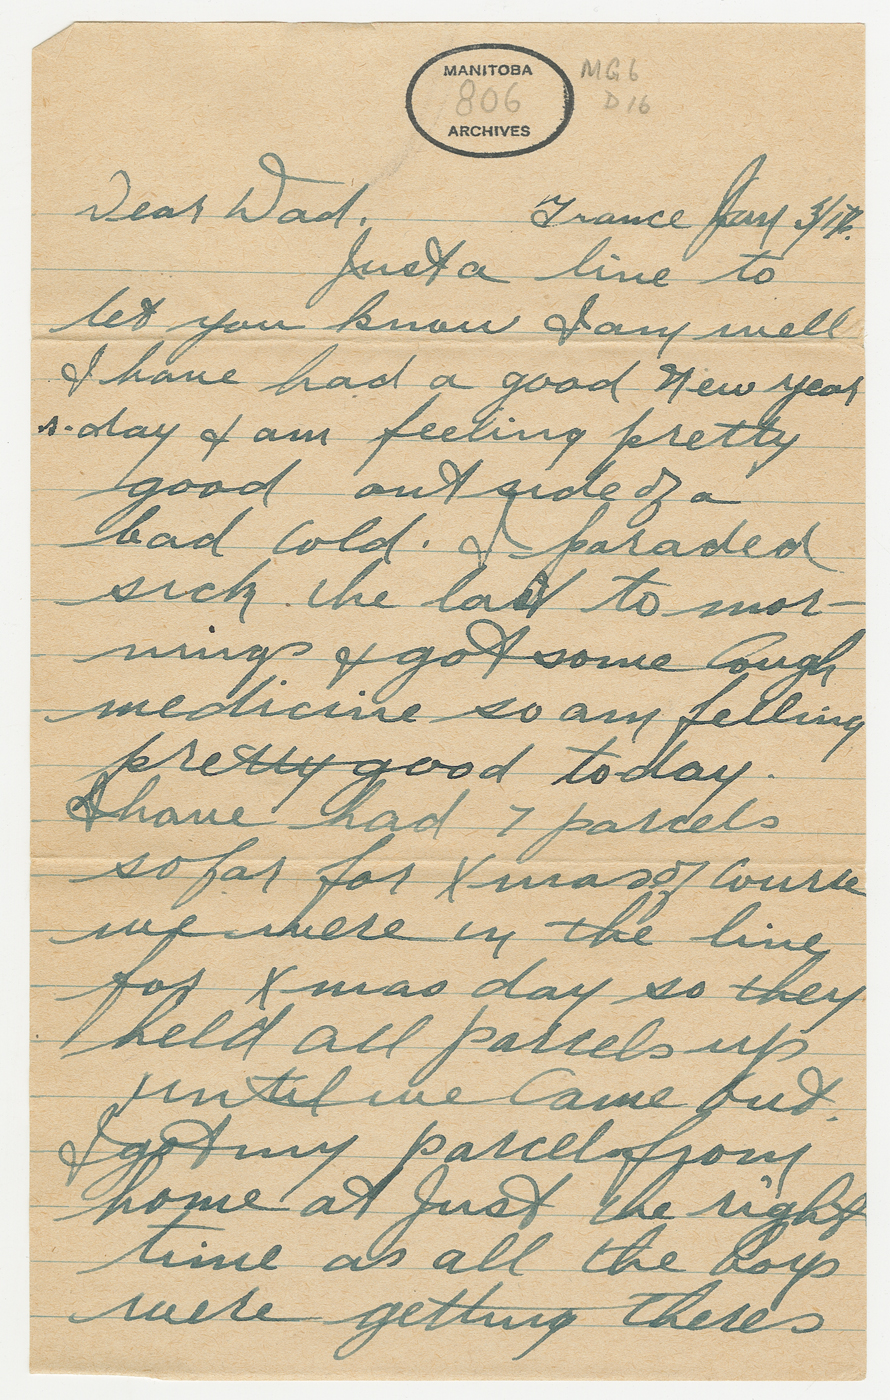 MANITOBA
806
ARCHIVES
MG6
D16
Dear Dad. France Jan 3/17.
Just a line to
let you know I am well
I have had a good New year
s-day & am feeling pretty
good outside of a
bad cold. I paraded
sick the last to mor-
nings & got some cough
medicine so am felling
pretty good today.
I have had 7 parcels
so far for Xmas of course
we were in the line
for Xmas day so they
held all parcels up
until we came out.
I got my parcel from
home at just the right
time as all the boys
were getting theres